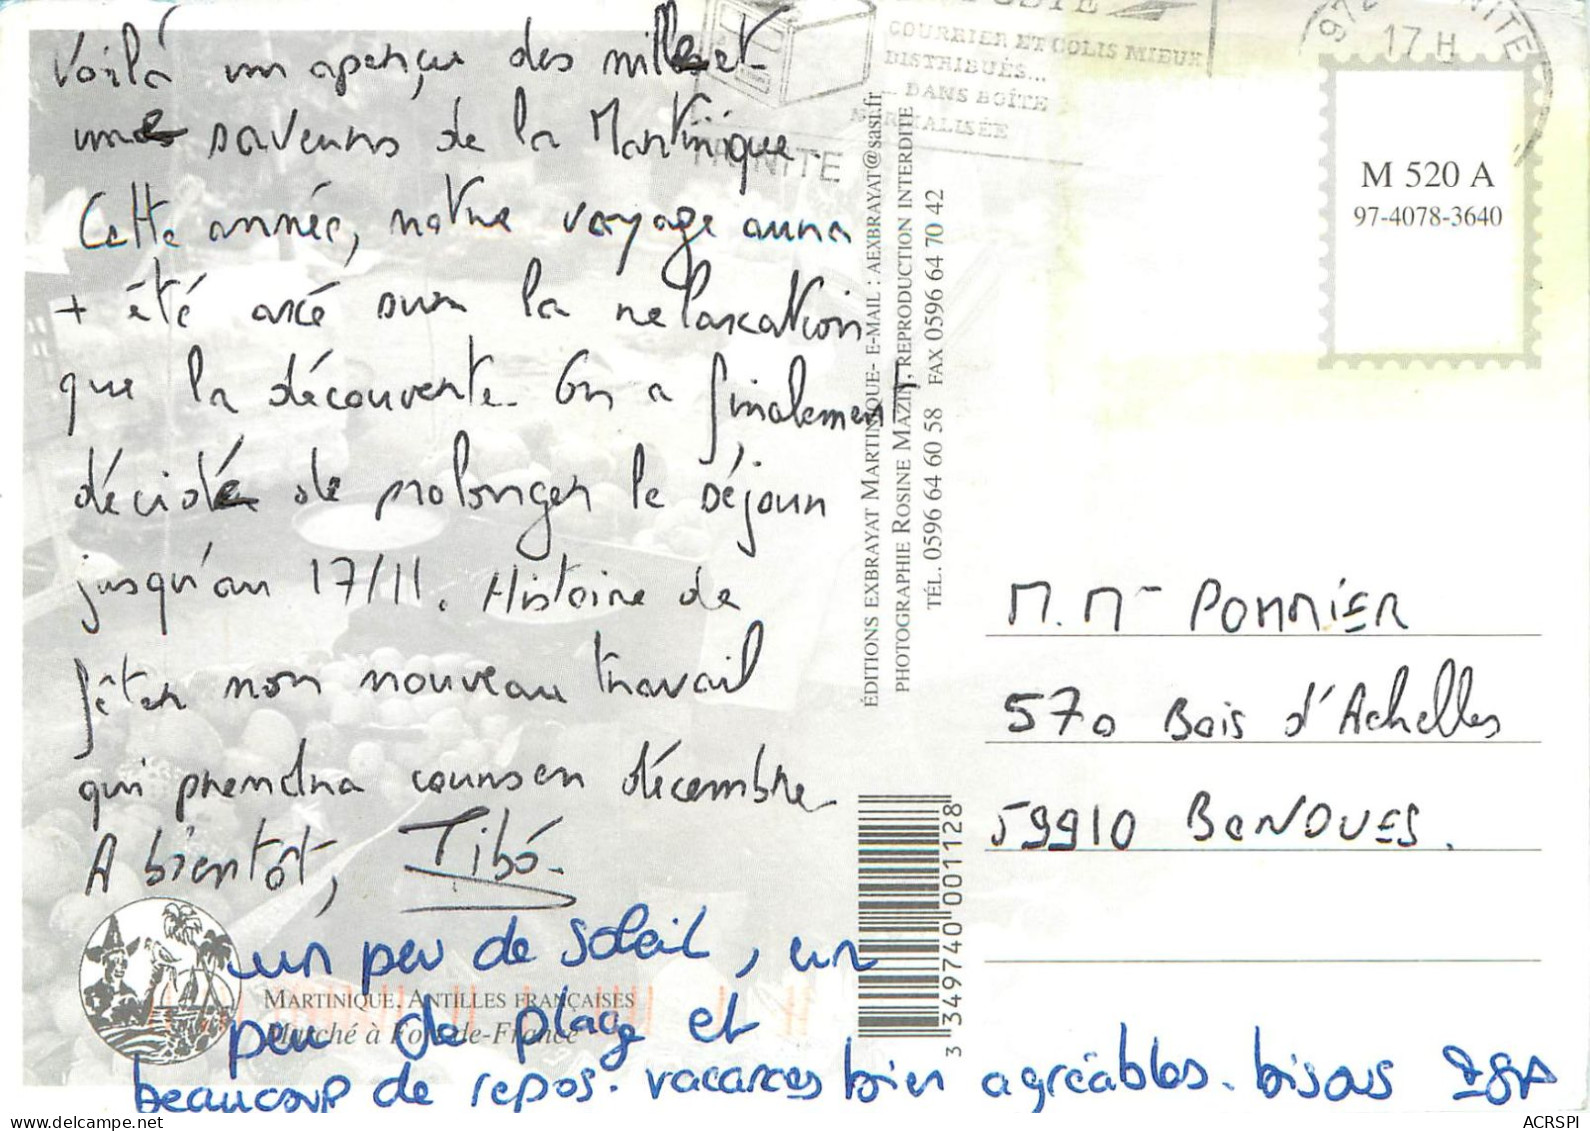 Voilà un aperçu des mille et
une saveurs de la Martinique.
Cette année, notre voyage aura
+ été axé sur la relaxation
que la découverte. On a finalement
décidé de prolonger le séjour
jusqu'au 17/11. Histoire de
fêter mon nouveau travail
qui prendra cours en décembre
A bientôt, Tibo.
un peu de soleil, un
peu de plage et
beaucoup de repos. vacances bien agréables. bisous
MARTINIQUE, ANTILLES FRANÇAISES
Marché à Fort-de-France
ÉDITIONS EXBRAYAT MARTINIQUE- E-MAIL : AEXBRAYAT@sasi.fr
PHOTOGRAPHE ROSINE MAZIN, REPRODUCTION INTERDITE
TÉL. 0596 64 60 58 FAX 0596 64 70 42
3 349740 001128
COURRIER ET COLIS MIEUX
DISTRIBUÉS...
... DANS BOÎTE
NORMALISÉE
TRINITE
17 H
M 520 A
97-4078-3640
M. Me POMMIER
570 Bois d'Achelles
59910 BONDUES.
ACRSPJ